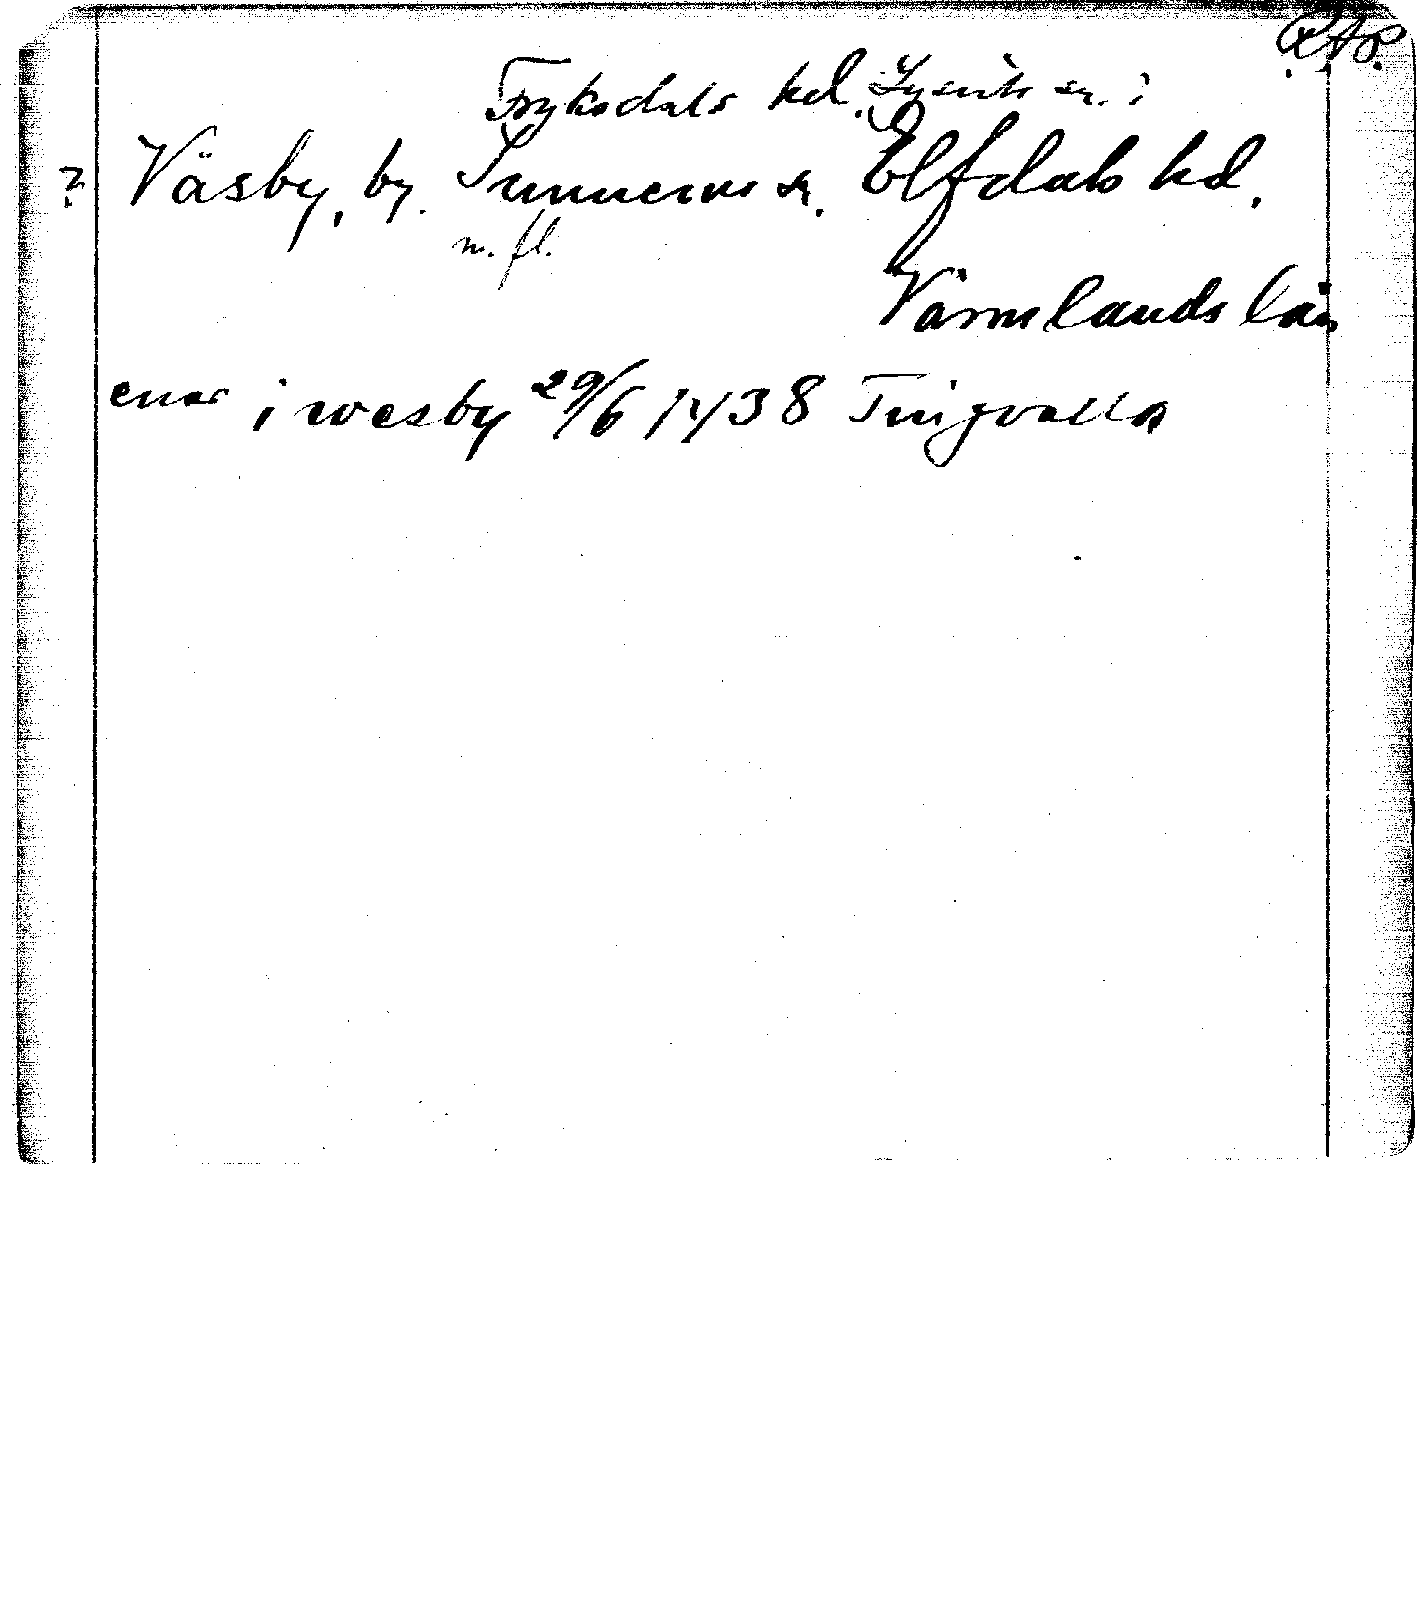 R.A.P.
Fryksdals hd. Lysviks sn. i
? Väsby, by. Sunnemo sn. Elfdals hd.
m. fl.
Värmlands län
enar i wesby 29/6 1438 Tingvalla